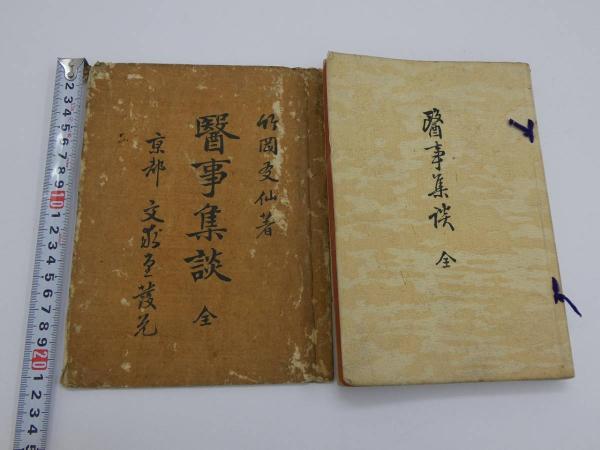 竹岡友仙著
醫事集談 全
京都 文求堂發兌
醫事集談 全
1 2 3 4 5 6 7 8 9 10 1 2 3 4 5 6 7 8 9 20 1 2 3 4 5